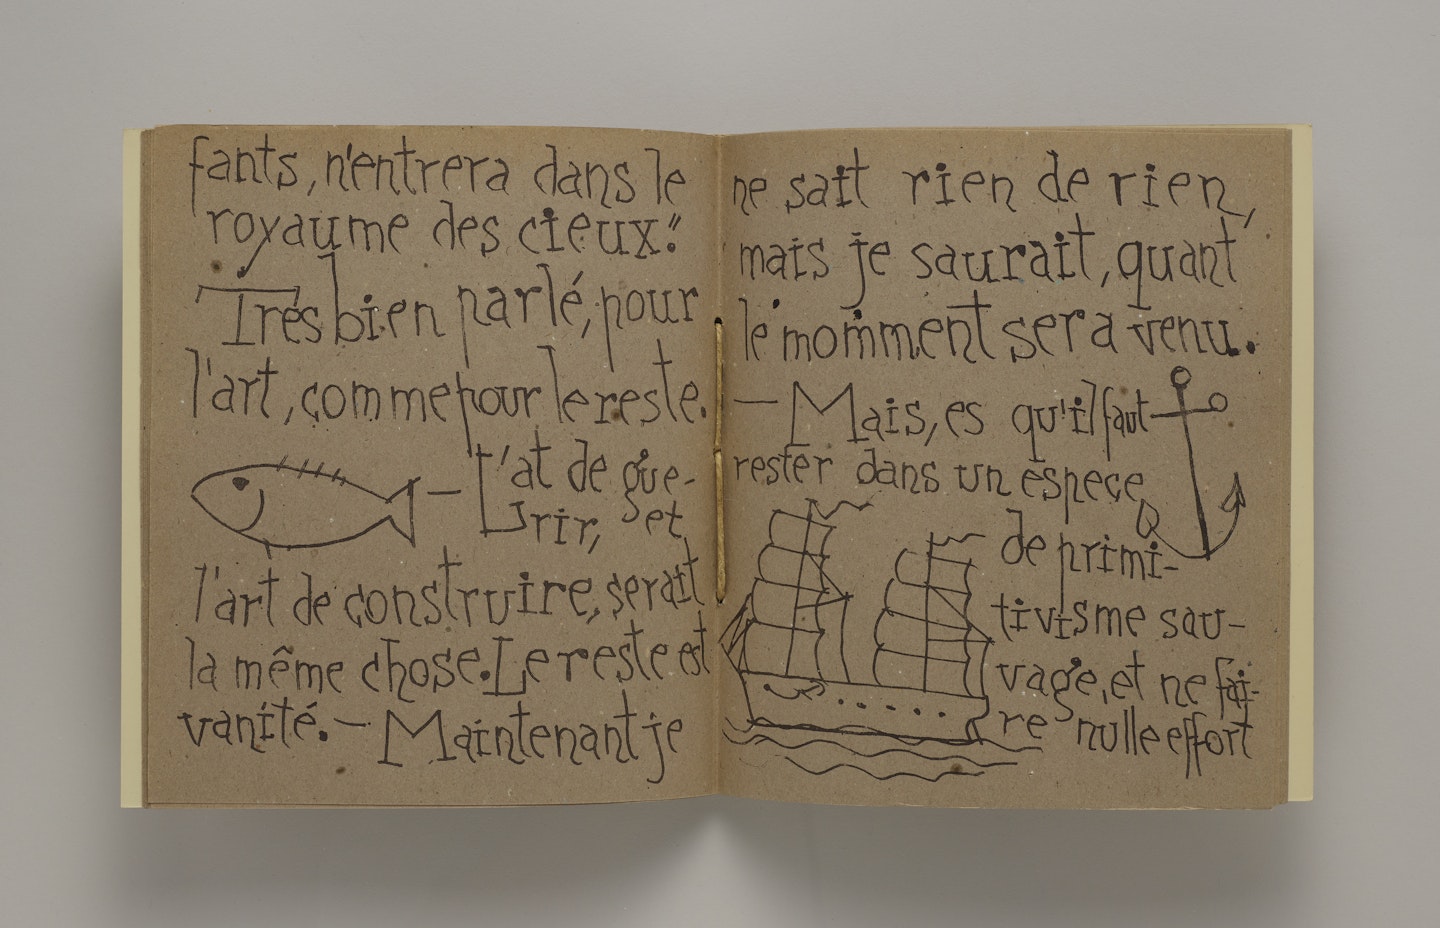 fants, n'entrera dans le
royaume des cieux."
Très bien parlé, pour
l'art, comme pour le reste.
— L'at de gue-
rir, et
l'art de construire, serait
la même chose. Le reste est
vanité. — Maintenant je
ne sait rien de rien,
mais je saurait, quant
le momment sera venu.
— Mais, es qu'il faut
rester dans un espece
de primi-
tivisme sau-
vage, et ne fai-
re nulle effort